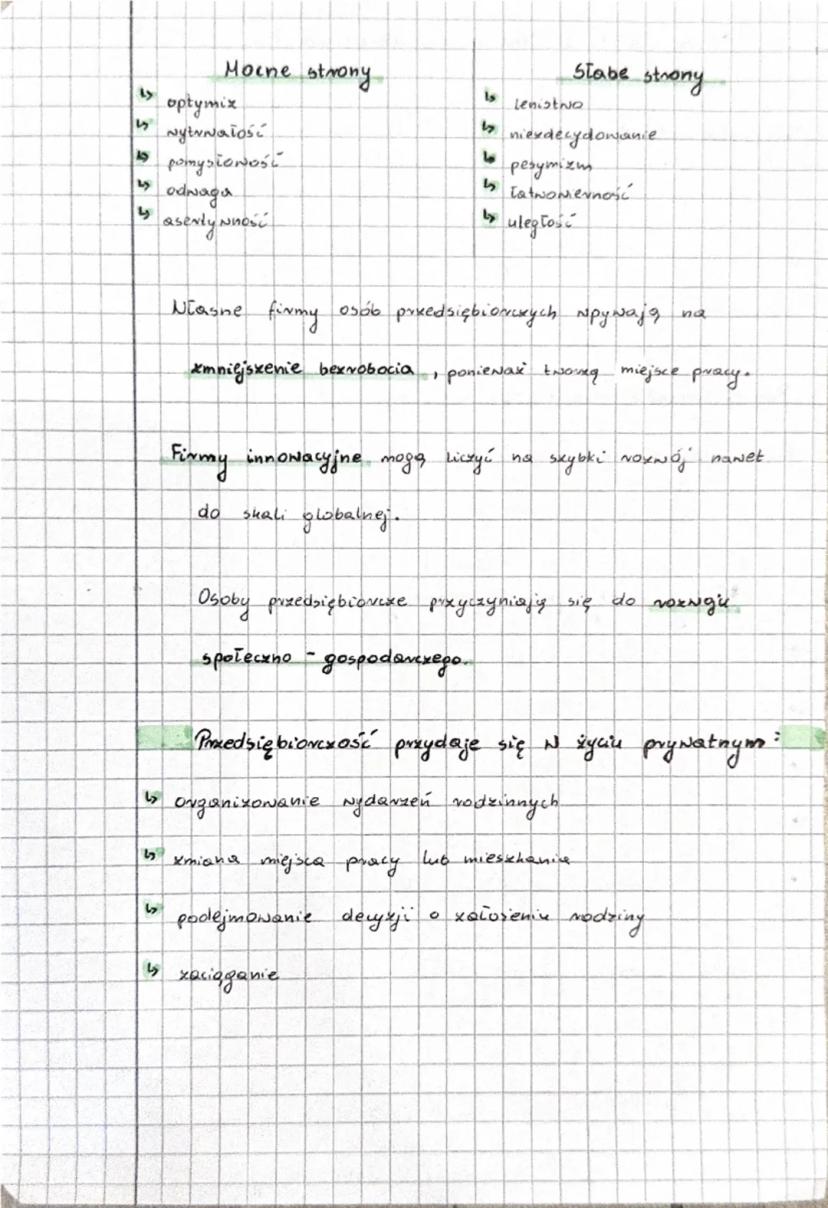 Mocne strony
Słabe strony
↳ optymizm
↳ wytrwałość
↳ pomysłowość
↳ odwaga
↳ asertywność
↳ lenistwo
↳ niezdecydowanie
↳ pesymizm
↳ łatwowierność
↳ uległość
Własne firmy osób przedsiębiorczych wpywają na
zmniejszenie bezrobocia, ponieważ tworzą miejsce pracy.
Firmy innowacyjne mogą liczyć na szybki rozwój nawet
do skali globalnej.
Osoby przedsiębiorcze przyczyniają się do rozwoju
społeczno - gospodarczego.
Przedsiębiorczość przydaje się w życiu prywatnym:
↳ organizowanie wydarzeń rodzinnych
↳ zmiana miejsca pracy lub mieszkania
↳ podejmowanie decyzji o założeniu rodziny
↳ zaciąganie